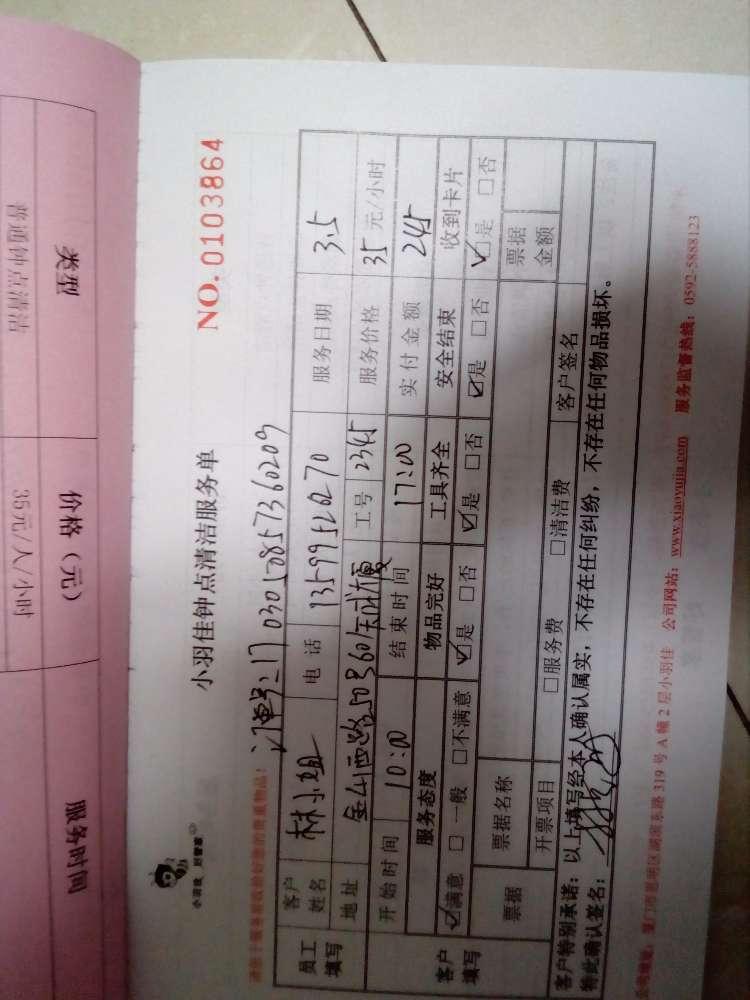 类型 价格（元） 服务时间
普通钟点清洁 35元/人/小时
小羽佳钟点清洁服务单 NO.0103864
订单号:17030508573 60209
员工填写 客户姓名 林小姐 电话 13599512270 服务日期 3.5
地址 金山西路 工号 2345 服务价格 35 元/小时
开始时间 10:00 结束时间 17:00 实付金额 245
客户填写 服务态度 物品完好 工具齐全 安全结束 收到卡片
☑满意 □一般 □不满意 ☑是 □否 ☑是 □否 ☑是 □否 ☑是 □否
票据 票据名称 票据金额
开票项目 □服务费 □清洁费 客户签名
客户特别承诺：以上填写经本人确认属实，不存在任何纠纷，不存在任何物品损坏。
特此确认签名：
厦门市思明区湖滨东路319号A幢2层小羽佳 公司网站：www.xiaoyujia.com 服务监督热线：0592-5888123